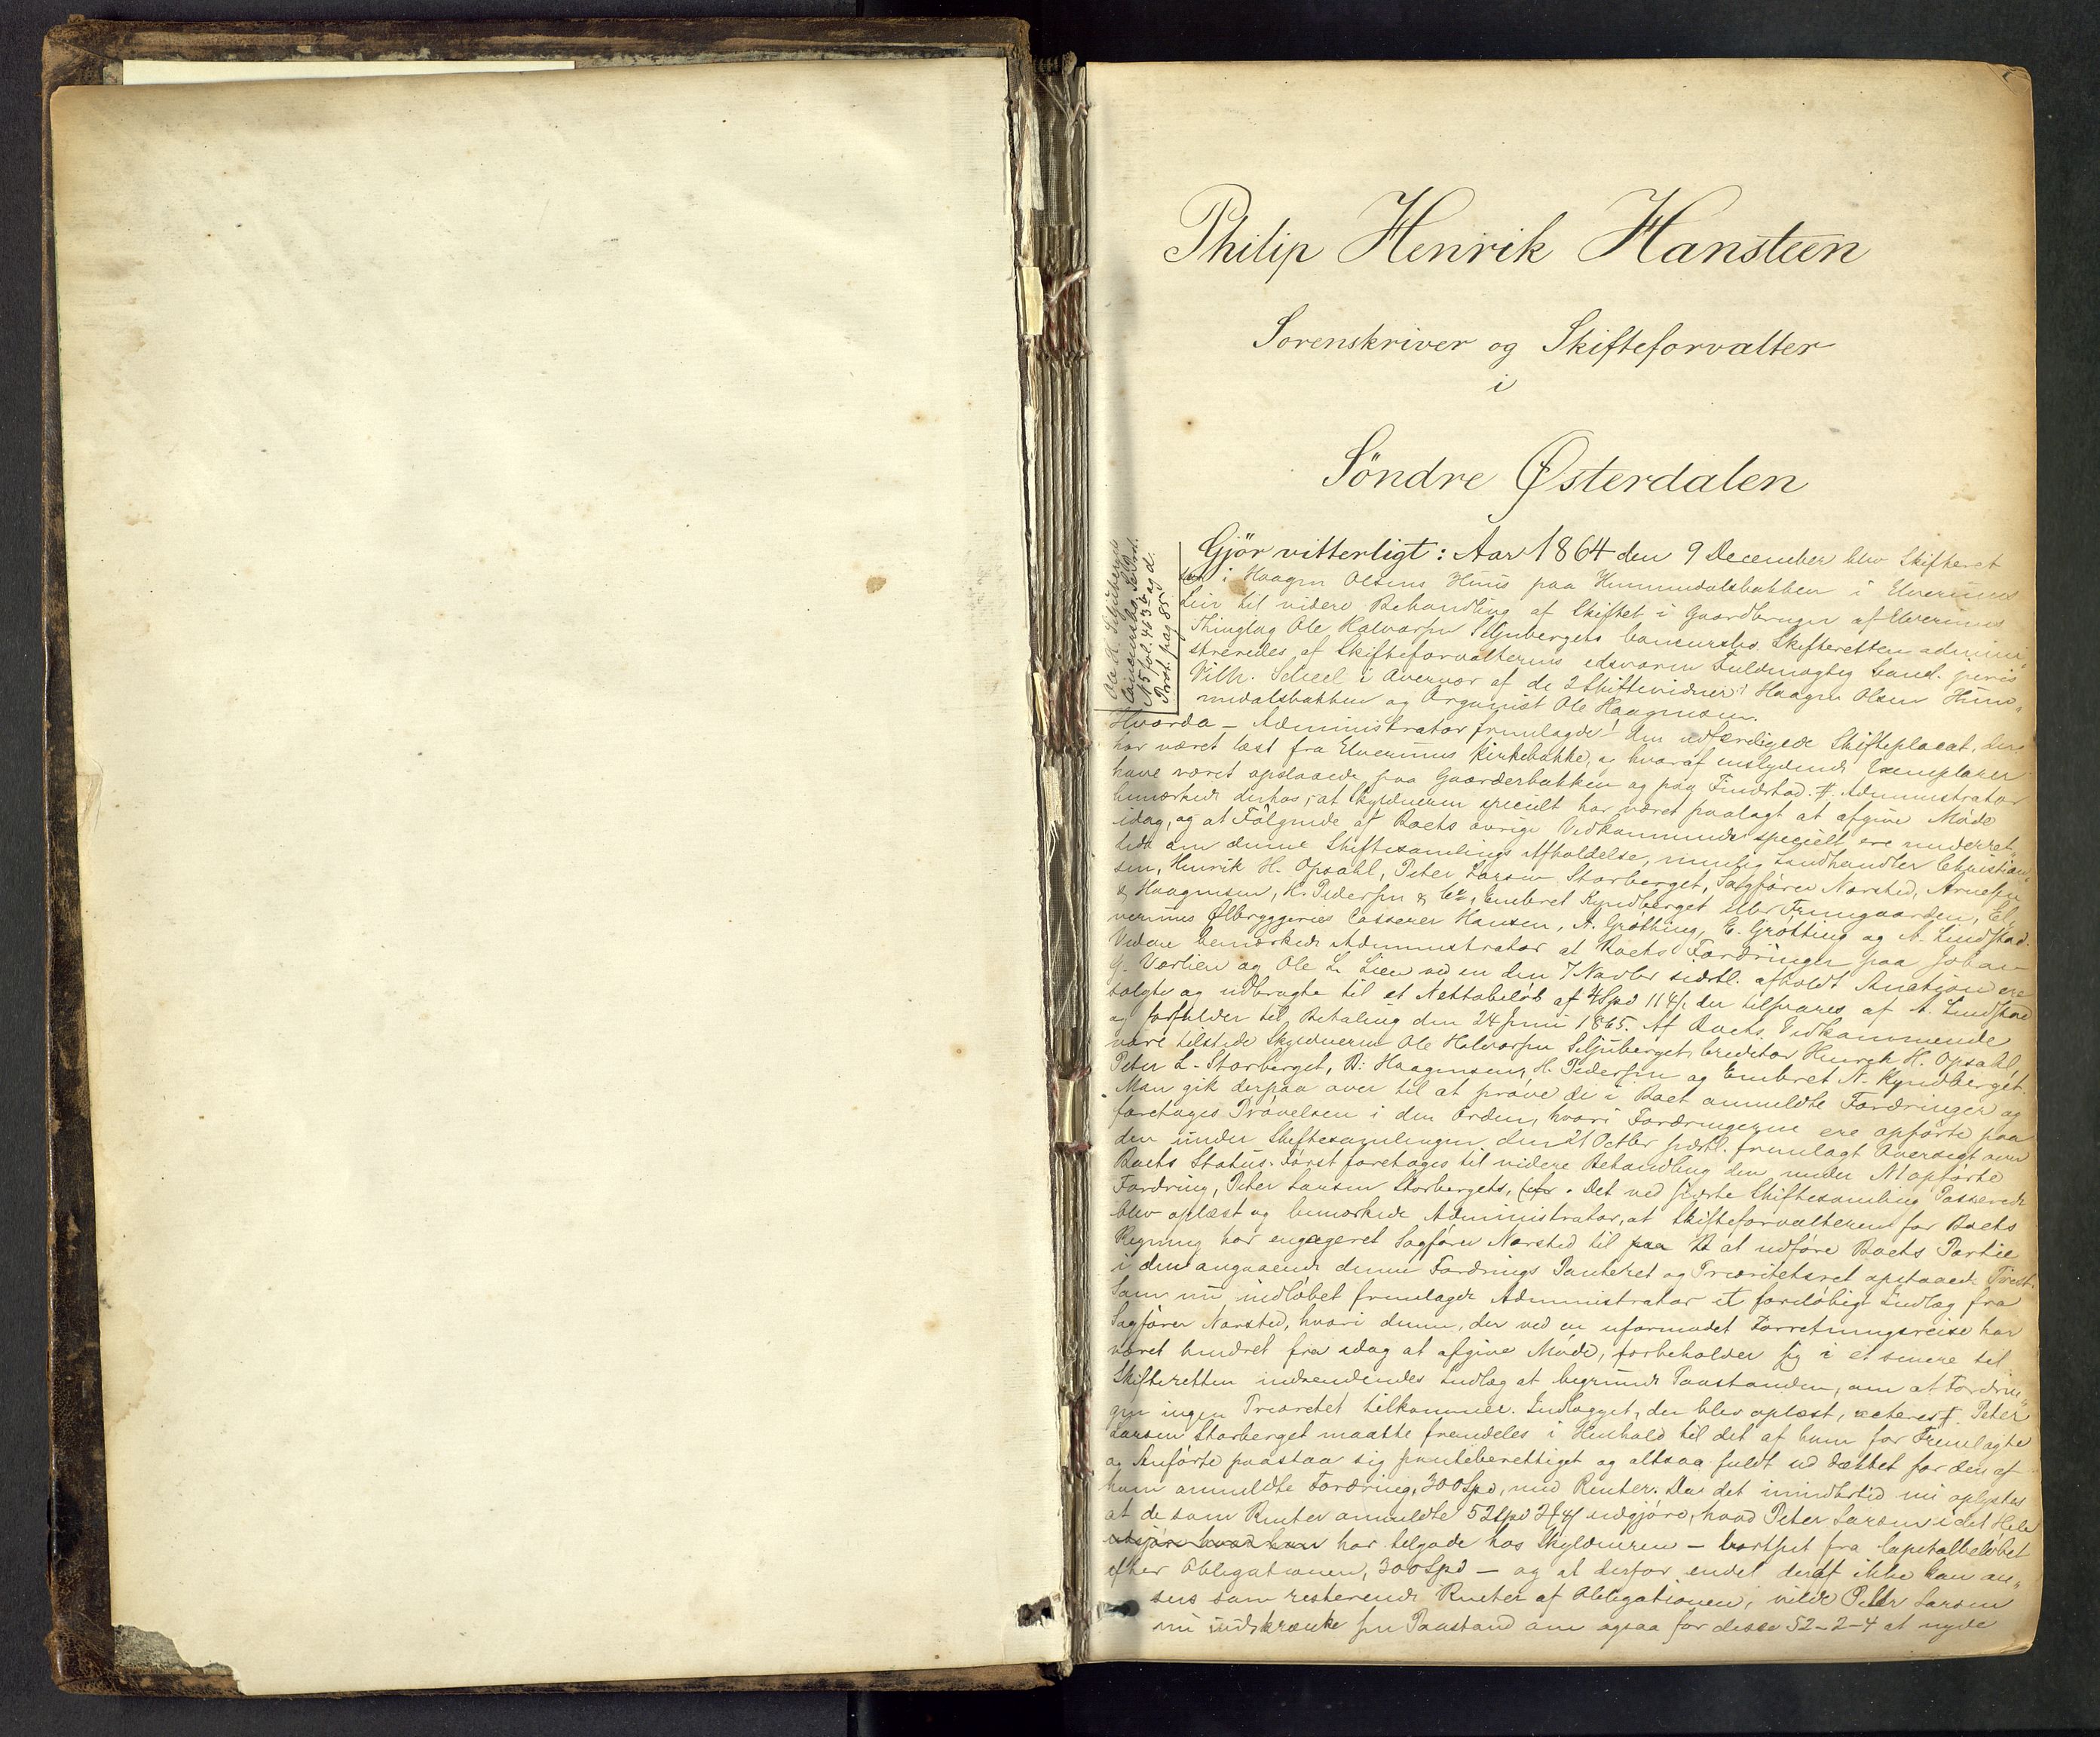 Philip Henrik Hansteen
Sorenskriver og Skifteforvalter
i
Söndre Østerdalen
Ole H. Siljubergets
N 5 fol. 463 b og d.
Prot. pag 85
Gjör vitterligt: Aar 1864 den 9 December blev Skifteret
ten i Haagen Olsens Huus paa Hummedalsbakken i Elverums
Lein til videre Behandling af Skiftet i Gaardbruger af Elverums
Thinglag Ole Halvorsen Siljubergets concursbo. Skifteretten admini
streredes af Skifteforvalterens edsvorne Fuldmægtig Cand. juris
Vilh. Scheel i Overvær af de 2 Skiftevidner: Haagen Olsen Hum„
medalsbakken og Organist Ole Haagensen.
Hvorda - Administrator fremlagde den udfærdigede Skifteplacat, der
har været læst fra Elverums Kirkebakke, og hvoraf enslydende Exemplarer
have været opslaaede paa Gaarderbakken og paa Findstad. Administrator
bemærkede derhos, at Skyldneren specielt har været paalagt at afgive Møde
idag, og at Fölgende af Boets övrige Vedkommende specielt ere underret„
tede om denne Skiftesamlings Afholdelse, nemlig Landhandler Christian„
sen, Henrik H. Opsahl, Peter Larsen Storberget, Sagförer Narsted, Arnesen
& Haagensen, H. Pedersen & Co, Embret Kyndberget eller Fremgaarden, El„
verums Ølbryggeries Casserer Hansen, A. Gröthing, E. Grötting og A. Lindstad.
Videre bemærkede Administrator at Boets Fordringer paa Johan
G. Værlien og Ole L. Lien ved en den 7 Novbr sidstl. afholdt Auction ere
solgte og udbragte til et Nettobelöb af 4 Spd 114 ß der tilsvares af A. Lindstad
og forfalder til Betaling den 24 Juni 1865. Af Boets Vedkommende
vare tilstede Skyldneren Ole Halvorsen Siljuberget, Creditor Henrik H. Opsahl,
Peter L. Storberget, B. Haagensen, H. Pedersen og Embret N. Kyndberget.
Man gik derpaa over til at pröve de i Boet anmeldte Fordringer og
foretoges Prövelsen i den Orden, hvori Fordringerne ere opförte paa
den under Skiftesamlingen den 21 Octbr sidstl. fremlagt Oversigt over
Boets Status. Först foretoges til videre Behandling den under N 1 opförte
Fordring, Peter Larsen Storbergets. Det ved sidste Skiftesamling Passerede
blev oplæst og bemærkede Administrator, at Skifteforvalteren for Boets
Regning har engageret Sagförer Narsted til paa B at udföre Boets Partie
i den angaaende denne Fordrings Panteret og Prioritetsret opstaaede Tvist.
Som nu indlöbet fremlagde Administrator et forelöbigt Indlæg fra
Sagförer Narsted, hvori denne, der ved en uformodet Forretningsreise har
været hindret fra idag at afgive Möde, forbeholder sig i et senere til
Skifteretten indsendendes Indlæg at begrunde Paastanden, om at Fordrin„
gen ingen Prioritet tilkommer. Indlægget, der blev oplæst, acteres. Peter
Larsen Storberget maatte fremdeles i Henhold til det af ham för Fremlagte
og Anförte paastaa sig panteberettiget og altsaa fuldt ud dækket for den af
ham anmeldte Fordring, 300 Spd, med Renter. Da det imidlertid nu oplystes
at de som Renter anmeldte 52 Spd 2 ¥ 4 ß udgjöre, hvad Peter Larsen i det Hele
udgjöre hvad han har tilgode hos Skyldneren - bortset fra Capitalbelöbet
efter Obligationen, 300 Spd - og at derfor endel deraf ikke kan an„
sees som resterende Renter af Obligationen, vilde Peter Larsen
nu indskrænke sin Paastand om ogsaa for disse 52-2-4 at nyde